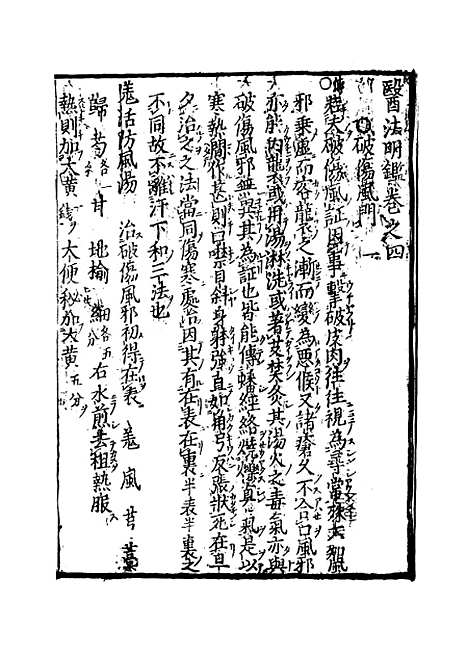 醫法明鑑卷之四
破傷風門 一
夫破傷風証因事擊破皮肉往往視為尋常殊不知風
邪乘虛而容襲之漸而變為惡候又諸瘡久不合口風邪
亦能內襲或用湯淋洗或著艾焚灸其湯火之毒氣亦與
破傷風邪無異其為証也皆能傳播經絡燒爍真氣是以
寒熱間作甚則口噤目斜身躰強直如角弓反張狀死在旦
夕治之之法當同傷寒處治因其有在表在裏半表半裏之
不同故不離汗下和三法也
羗活防風湯 治破傷風邪初得在表 羗 風 芎 藁
歸 芍 各一 甘 地榆 細 各五分 右水煎去粗熱服
熱則加大黃 大便秘加大黃 五分